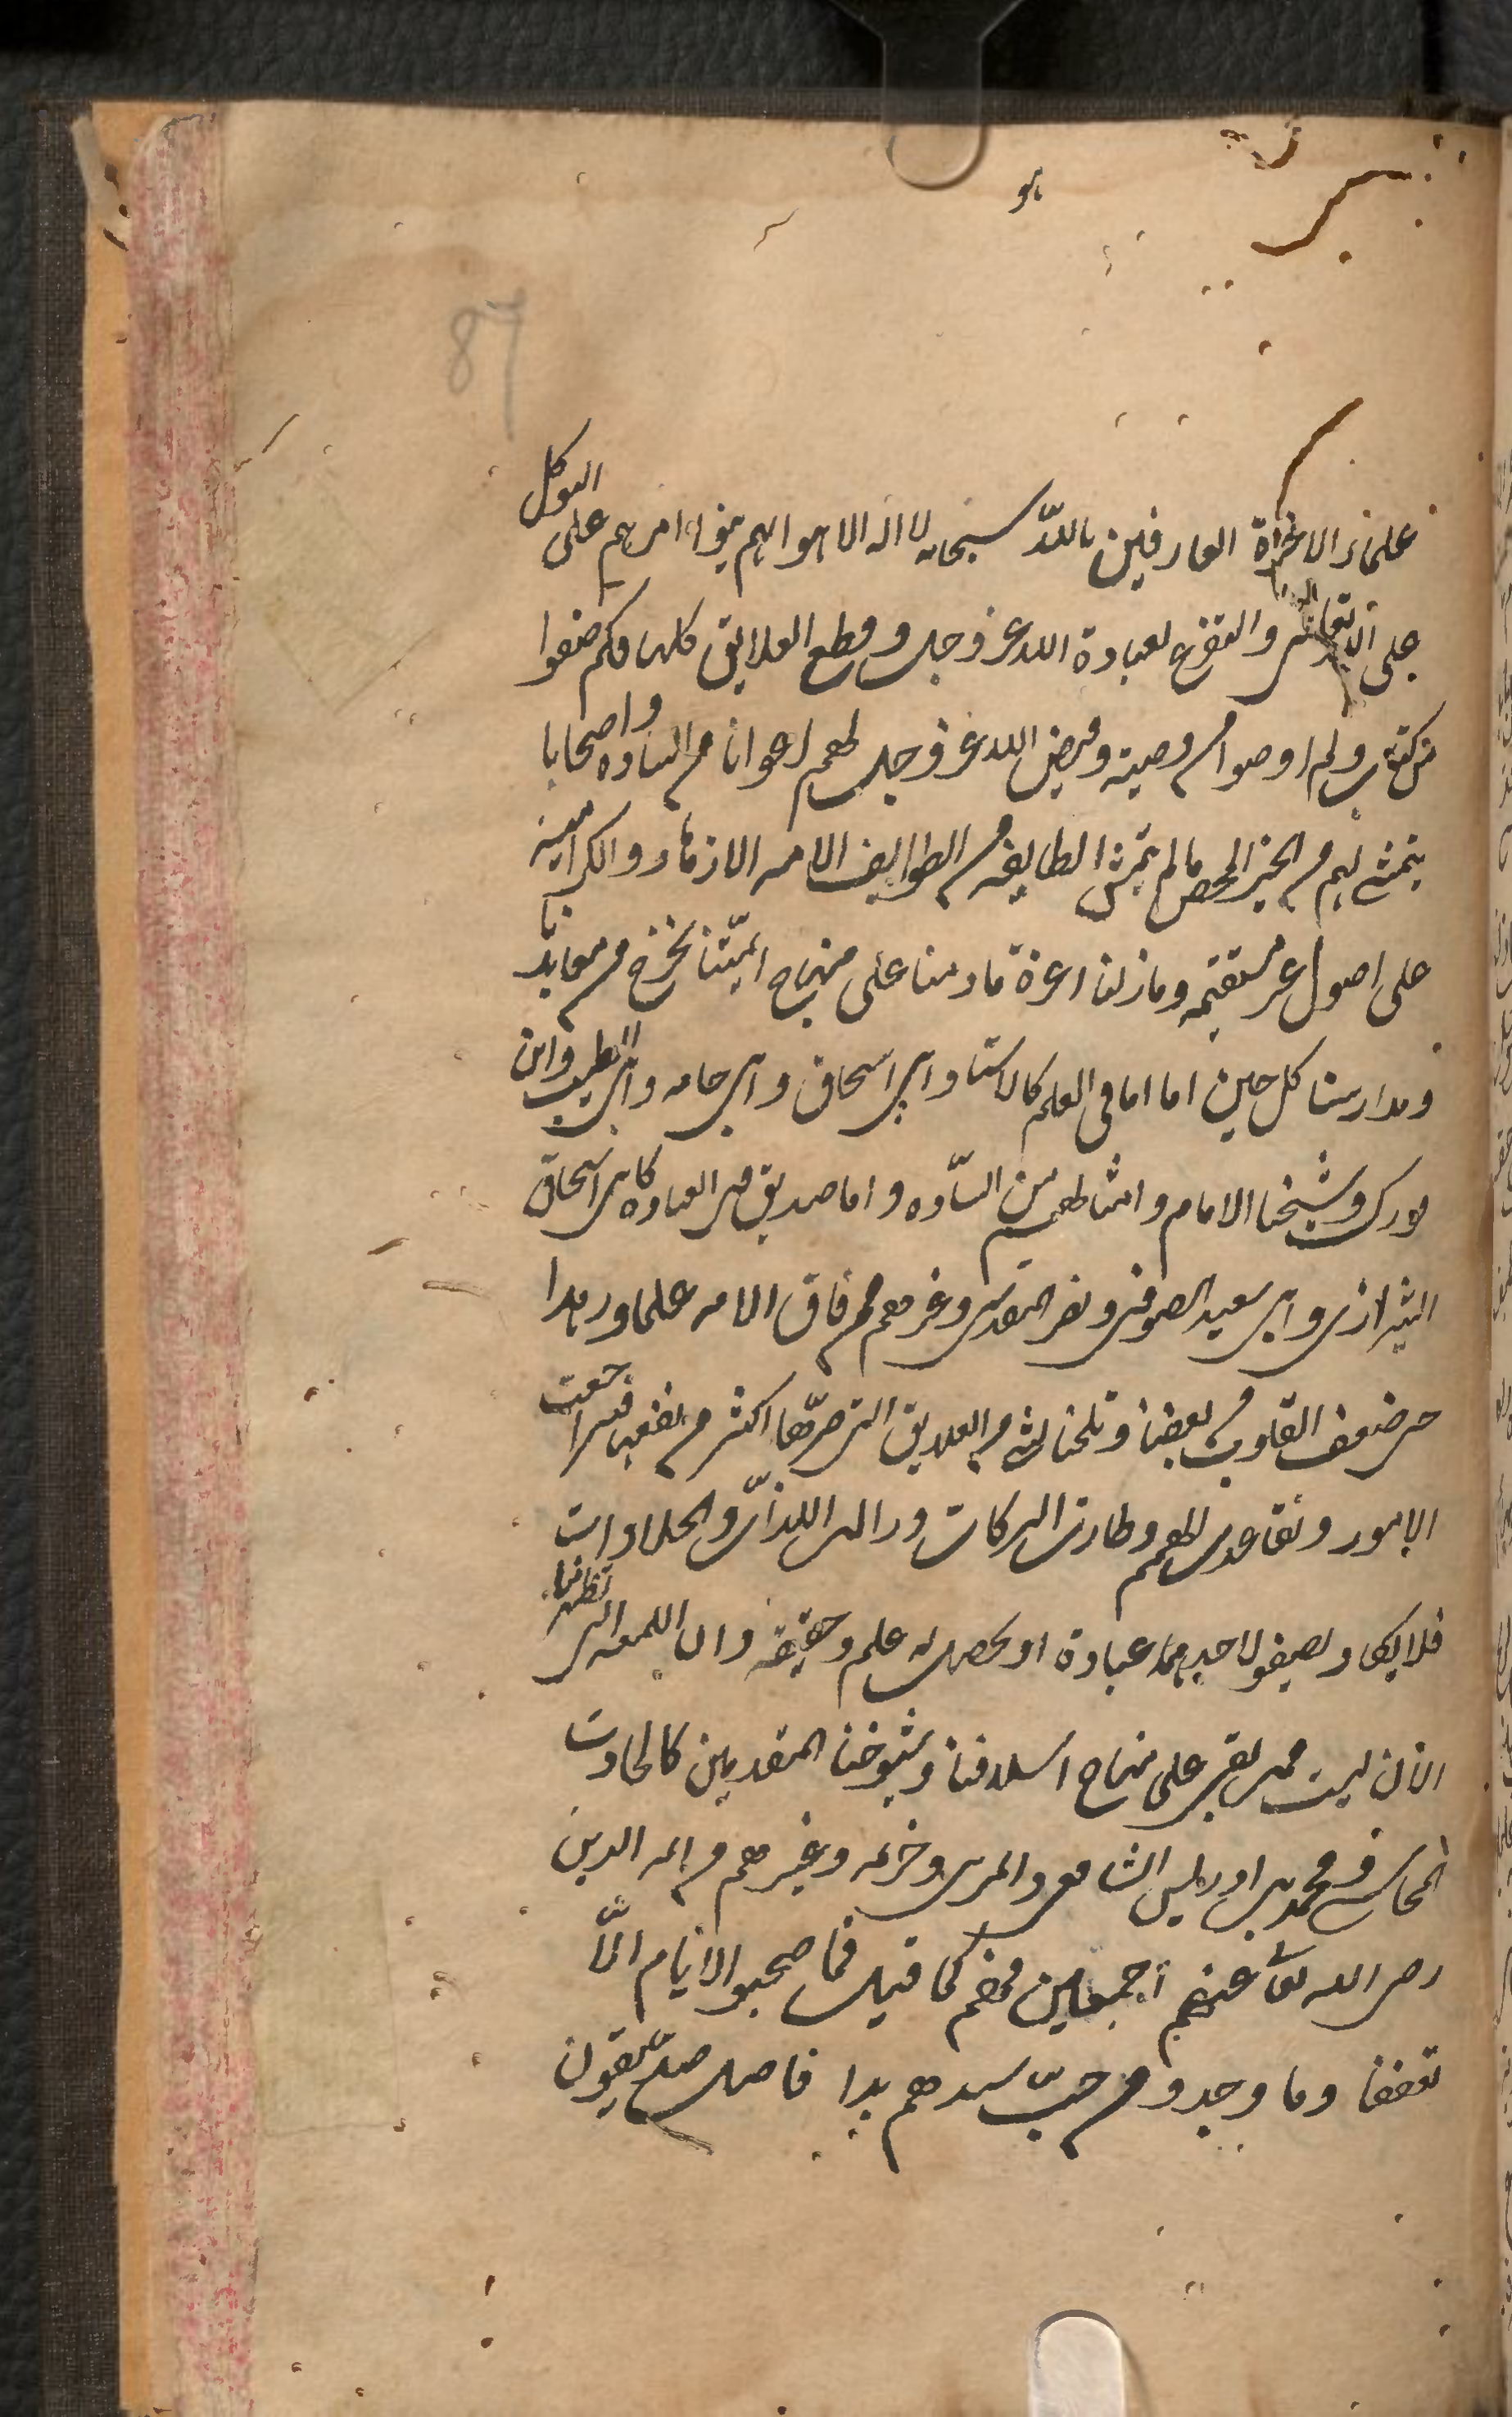 هو
87
علماء الاخرة العارفين بالله سبحانه لا اله الا هو انهم بنوا امرهم على التوكل
على الله تعالى والتفرغ لعبادة الله عز وجل وقطع العلائق كلها فكم صنفوا
من كتاب ولم اوصوا من وصية وقيض الله عز وجل لهم اعوانا من السادة واصحابا
يتمشى لهم من الخير المحض ما لم يتمش لطايفة من الطوايف الائمة الا زهاد والكرامية
على اصول غير مستقيمة وما زلنا اعزة ما دمنا على منهاج ائمتنا يخرج من معابدنا
ومدارسنا كل حين اما امام في العلم كالاستاد ابي اسحاق وابي حامد وابي الطيب وابن
فورك وشيخنا الامام وامثالهم من السادة واما صديق في العبادة كابي اسحاق
الشيرازي وابي سعيد الصوفي ونصر المقدسي وغيرهم ممن فاق الامة علما وزهدا
حتى ضعف القلوب من بعضنا وتلطخنا بشيء من العلائق التي ضرها اكثر من نفعها فتراجعت
الامور وتقاعدت الهمم وطارت البركات وزالت اللذات والحلاوات
فلا يكاد يصفو لاحد منا عبادة او يحصل له علم وحقيقة وان اللمعة التي تظهر منا
الان ليست ممن بقي على منهاج اسلافنا وشيوخنا المتقدمين كالحارث
المحاسبي ومحمد بن ادريس الشافعي والمزني وحرملة وغيرهم من ائمة الدين
رضي الله تعالى عنهم اجمعين فهم كما قيل فما صحبوا الايام الا
تعففا وما وجدوا من حب سيدهم بدا فاضل صديقون